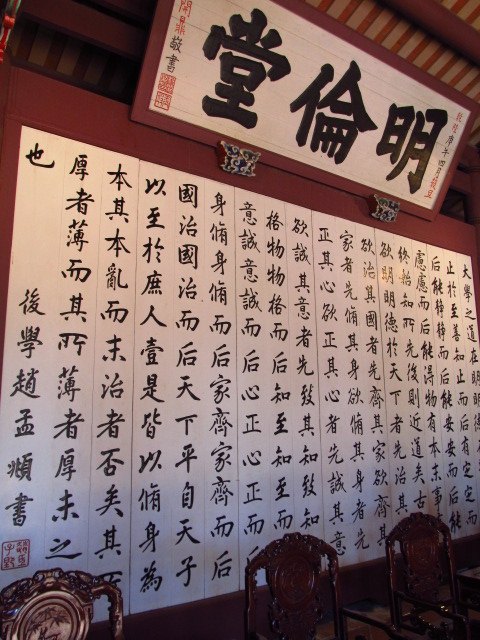 明倫堂
歲次庚午四月穀旦
開鼎敬書
大學之道在明明德
止於至善知止而后有定定而
后能靜靜而后能安安而后能
慮慮而后能得物有本末事有
終始知所先後則近道矣古之
欲明明德於天下者先治其
欲治其國者先齊其家欲齊
家者先脩其身欲脩其身者先
正其心欲正其心者先誠其意
欲誠其意者先致其知致知
格物物格而后知至知至而
意誠意誠而后心正心正而
身脩身脩而后家齊家齊而后
國治國治而后天下平自天子
以至於庶人壹是皆以脩身為
本其本亂而末治者否矣其所
厚者薄而其所薄者厚未之
也
後學趙孟頫書